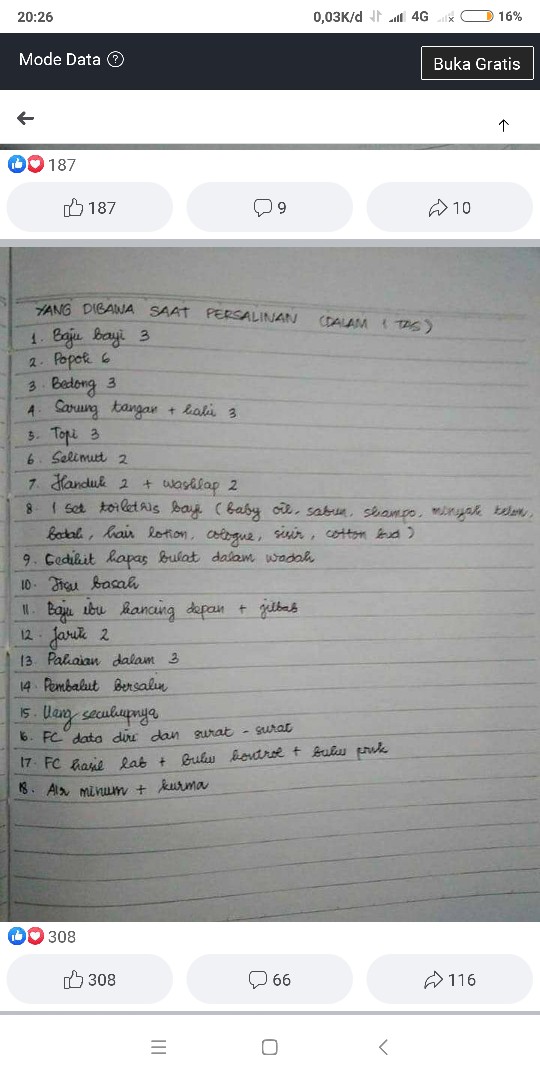 20:26 0,03K/d 4G 16%
Mode Data ? Buka Gratis
187
187 9 10
YANG DIBAWA SAAT PERSALINAN (DALAM 1 TAS)
1. Baju bayi 3
2. Popok 6
3. Bedong 3
4. Sarung tangan + kaki 3
5. Topi 3
6. Selimut 2
7. Handuk 2 + washlap 2
8. 1 set toiletris bayi (baby oil, sabun, shampo, minyak telon,
bedak, hair lotion, cologne, sisir, cotton bud)
9. Sedikit kapas bulat dalam wadah
10. Tisu basah
11. Baju ibu kancing depan + jilbab
12. Jarik 2
13. Pakaian dalam 3
14. Pembalut Bersalin
15. Uang secukupnya
16. FC data diri dan surat - surat
17. FC hasil lab + buku kontrol + buku pink
18. Air minum + kurma
308
308 66 116